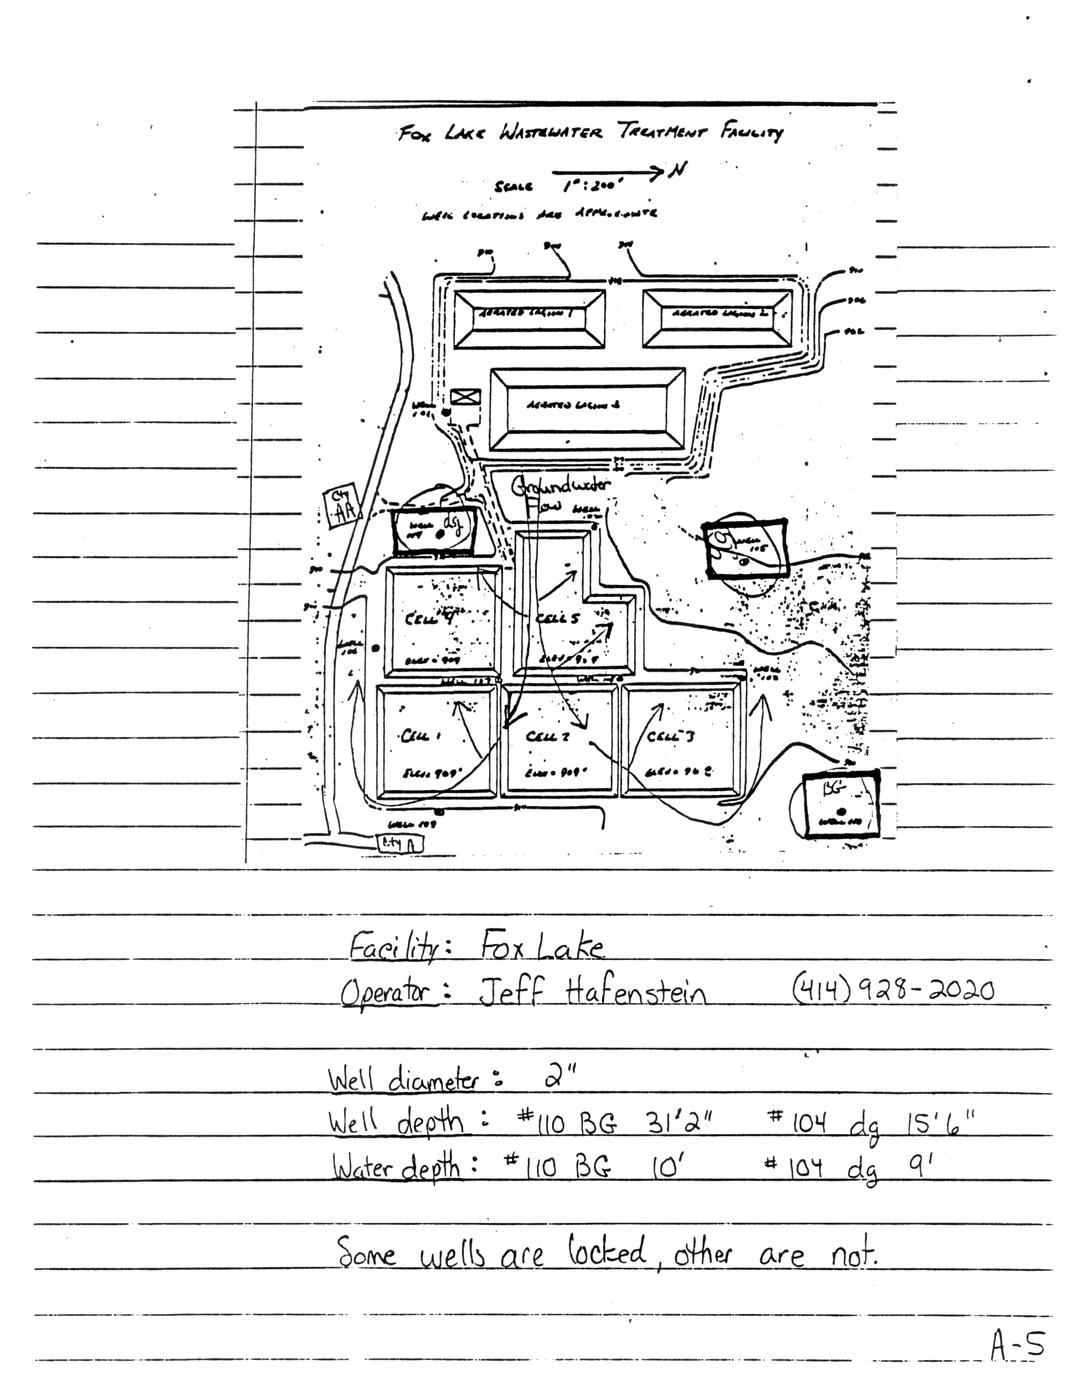 FOX LAKE WASTEWATER TREATMENT FACILITY
N
SCALE 1":200'
WELL LOCATIONS ARE APPROXIMATE
AERATED LAGOON 1
AERATED LAGOON 2
902
AERATED LAGOON 3
WELL
Cty
AA
Groundwater
Flow
WELL
WELL
dg
WELL
105
CELL 4
ELEV = 909
CELL 5
WELL
106
WELL 107
WELL
CELL 1
ELEV = 909'
CELL 2
ELEV = 909'
CELL 3
BG
WELL 110
WELL 108
Cty A
Facility: Fox Lake
Operator: Jeff Hafenstein (414) 928-2020
Well diameter: 2"
Well depth: #110 BG 31'2" #104 dg 15'6"
Water depth: #110 BG 10' #104 dg 9'
Some wells are locked, other are not.
A-5